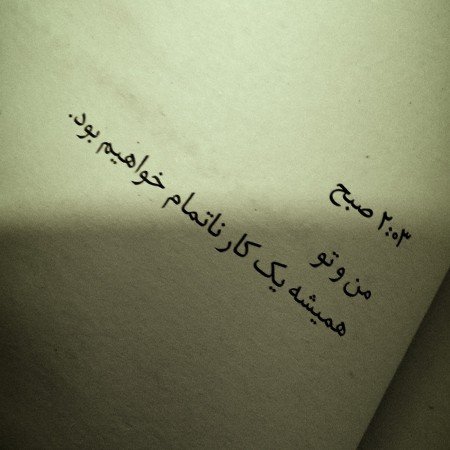 ۲:۰۳ صبح
من و تو
همیشه یک کار ناتمام خواهیم بود.